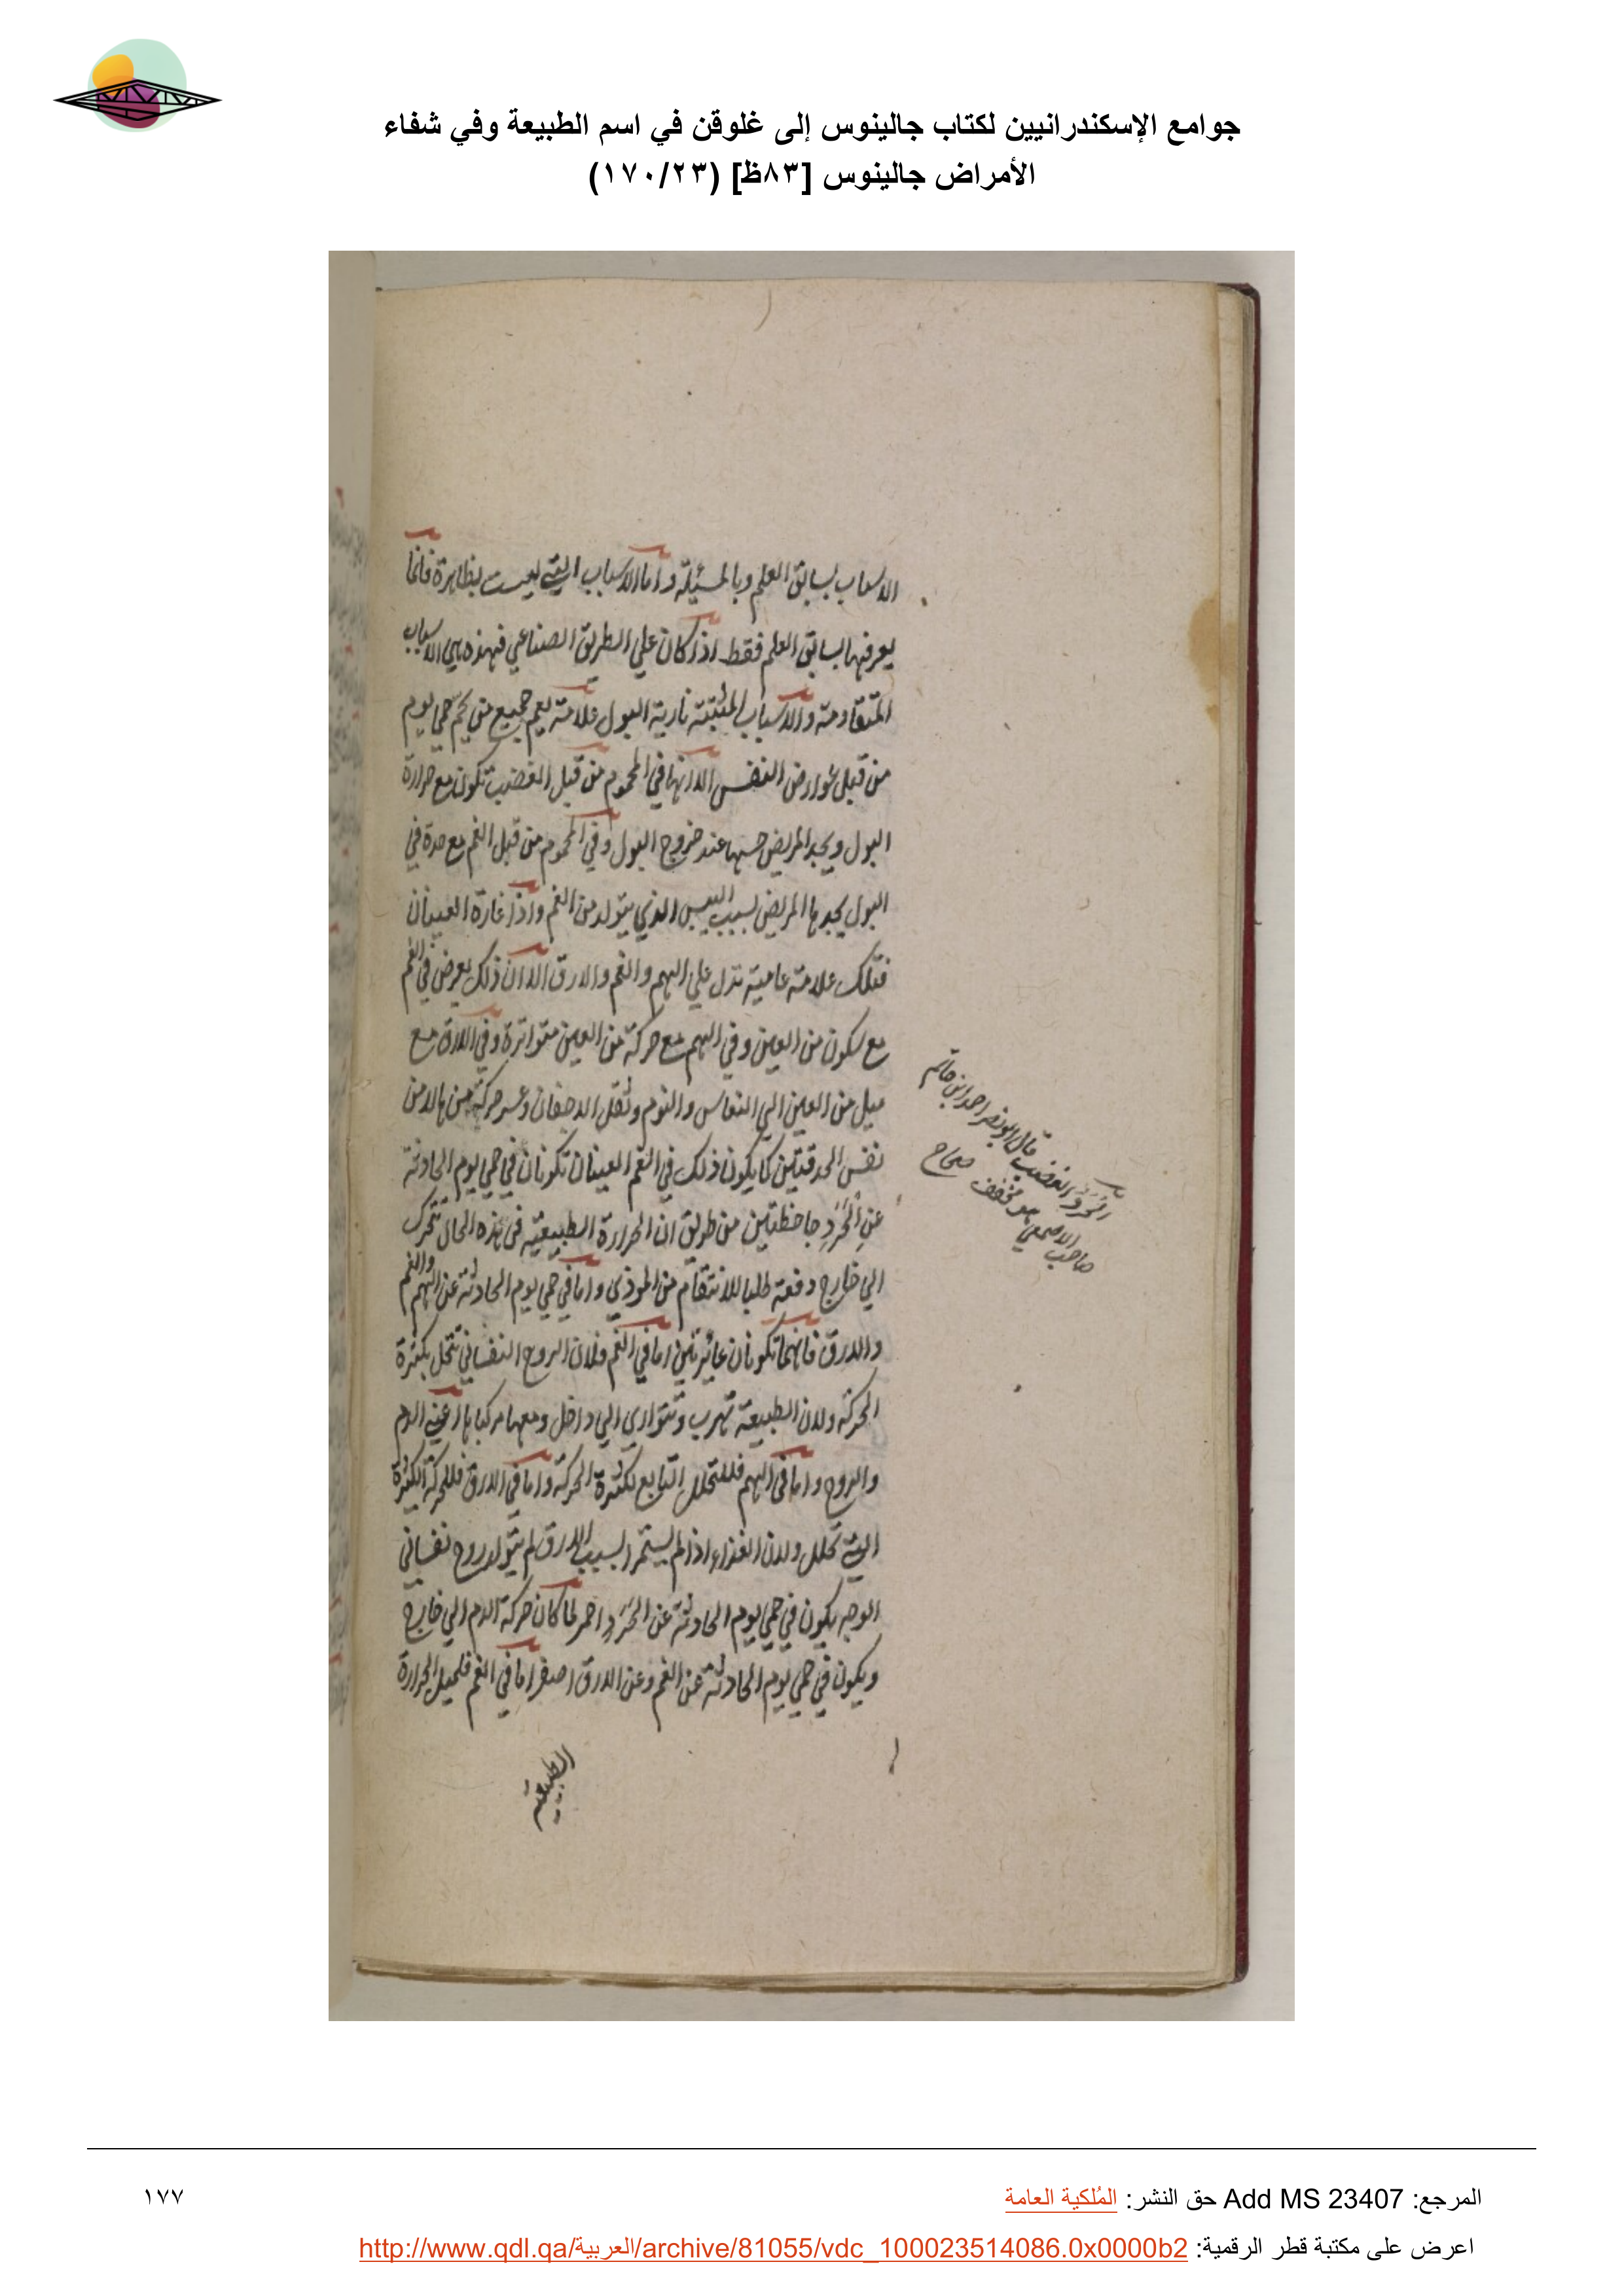 جوامع الإسكندرانيين لكتاب جالينوس إلى غلوقن في اسم الطبيعة وفي شفاء
الأمراض جالينوس [٨٣ظ] (١٧٠/٢٣)
الاسباب بسابق العلم وبالمسئلة واما الاسباب التي ليست بظاهرة فانما
يعرفها بسابق العلم فقط اذا كان علي الطريق الصناعي فهذه هي الاسباب
المتقادمة والاسباب المثبتة نارية البول علامة يعم جميع من يحم حمي يوم
من قبل عوارض النفس الا انها في المحموم من قبل الغضب تكون مع حرارة
البول ويجد المريض حسها عند خروج البول وفي المحموم من قبل الغم مع حدة في
البول يجدها المريض بسبب اليبس الذي يتولد من الغم واذا غارة العينان
فتلك علامة عامية تدل علي الهم والغم والارق الا ان ذلك يعرض في الغم
مع سكون من العين وفي الهم مع حركة من العين متواترة وفي الارق مع
ميل من العين الي النعاس والنوم وثقل الاجفان وعسر حركة منها لا من
نفس الحدقتين كما يكون ذلك في الغم العينان تكونان في حمي يوم الحادثة
عن الحَرَدِ جاحظتين من طريق ان الحرارة الطبيعية في هذه الحال تتحرك
الي خارج دفعة طلبا للانتقام من الموذي واما في حمي يوم الحادثة عن الهم والغم
والارق فانهما تكونان غائرتين اما في الغم فلان الروح النفساني تتحل بكثرة
الحركة ولان الطبيعة تهرب وتتواري الي داخل ومعها مركباها اعني الدم
والروح واما في الهم فللتحلل التابع لكثرة الحركة واما في الارق فللحركة الكثيرة
التي تحلل ولان الغذاء اذا لم يستمرا بسبب الارق لم يتولد روح نفساني
الوجه يكون في حمي يوم الحادثة عن الحَرَدِ احمر لما كان حركة الدم الي خارج
ويكون في حمي يوم الحادثة عن الغم وعن الارق اصفر اما في الغم فلميل الحرارة
الطبيعية
الحَرَد الغضب قال ابو نصر احمد ابن حاتم
صاحب الاصمعي هو مخفف صحاح
المرجع: Add MS 23407 حق النشر: المُلكية العامة
١٧٧
اعرض على مكتبة قطر الرقمية: http://www.qdl.qa/العربية/archive/81055/vdc_100023514086.0x0000b2